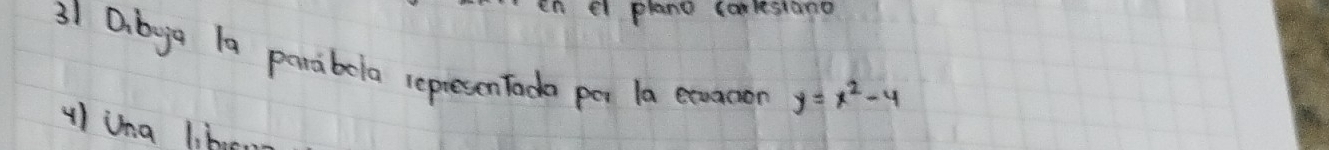 en el plano cartesiano
3) Dibuja la parábola representada por la ecuacion y = x² - 4
4) Una